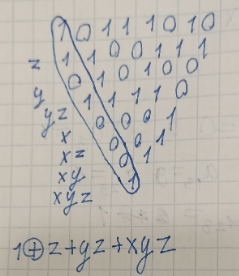 1 0 1 1 1 0 1 0
z 1 1 0 0 1 1 1
y 0 1 0 1 0 0
yz 1 1 1 1 0
x 0 0 0 1
xz 0 0 1
xy 0 1
xyz 1
1⊕z+yz+xyz